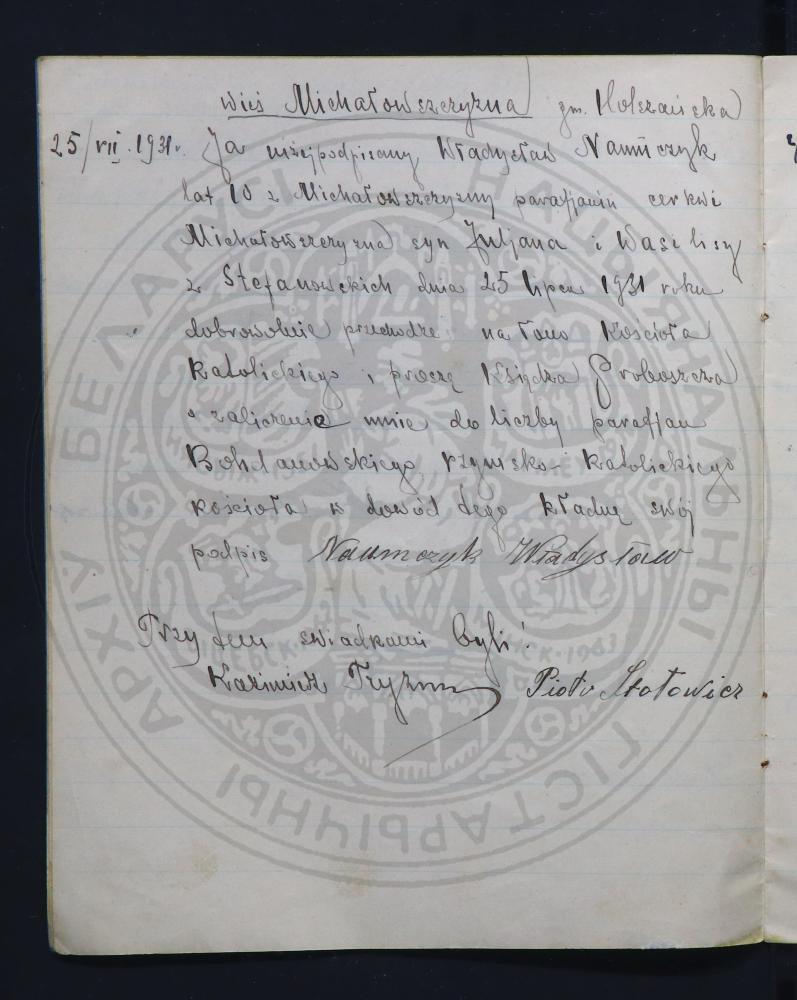 wieś Michałowszczyzna gm. Holszańska
25/VII.1931r. Ja niżej podpisany Władysław Naumczyk
lat 10 z Michałowszczyzny parafjanin cerkwi
Michałowszczyzna syn Juljana i Wasilisy
z Stefanowskich dnia 25 lipca 1931 roku
dobrowolnie przechodze na łono Kościoła
Katolickiego i proszę Księdza Proboszcza
o zaliczenie mnie do liczby parafjan
Bohdanowskiego rzymsko-katolickiego
kościoła w dowód tego kładnę swój
podpis Naumczyk Władysław
Przy tem swiadkami byli:
Kazimierz Piotr
НАЦЫЯНАЛЬНЫ
ГІСТАРЫЧНЫ
АРХІЎ БЕЛАРУСІ